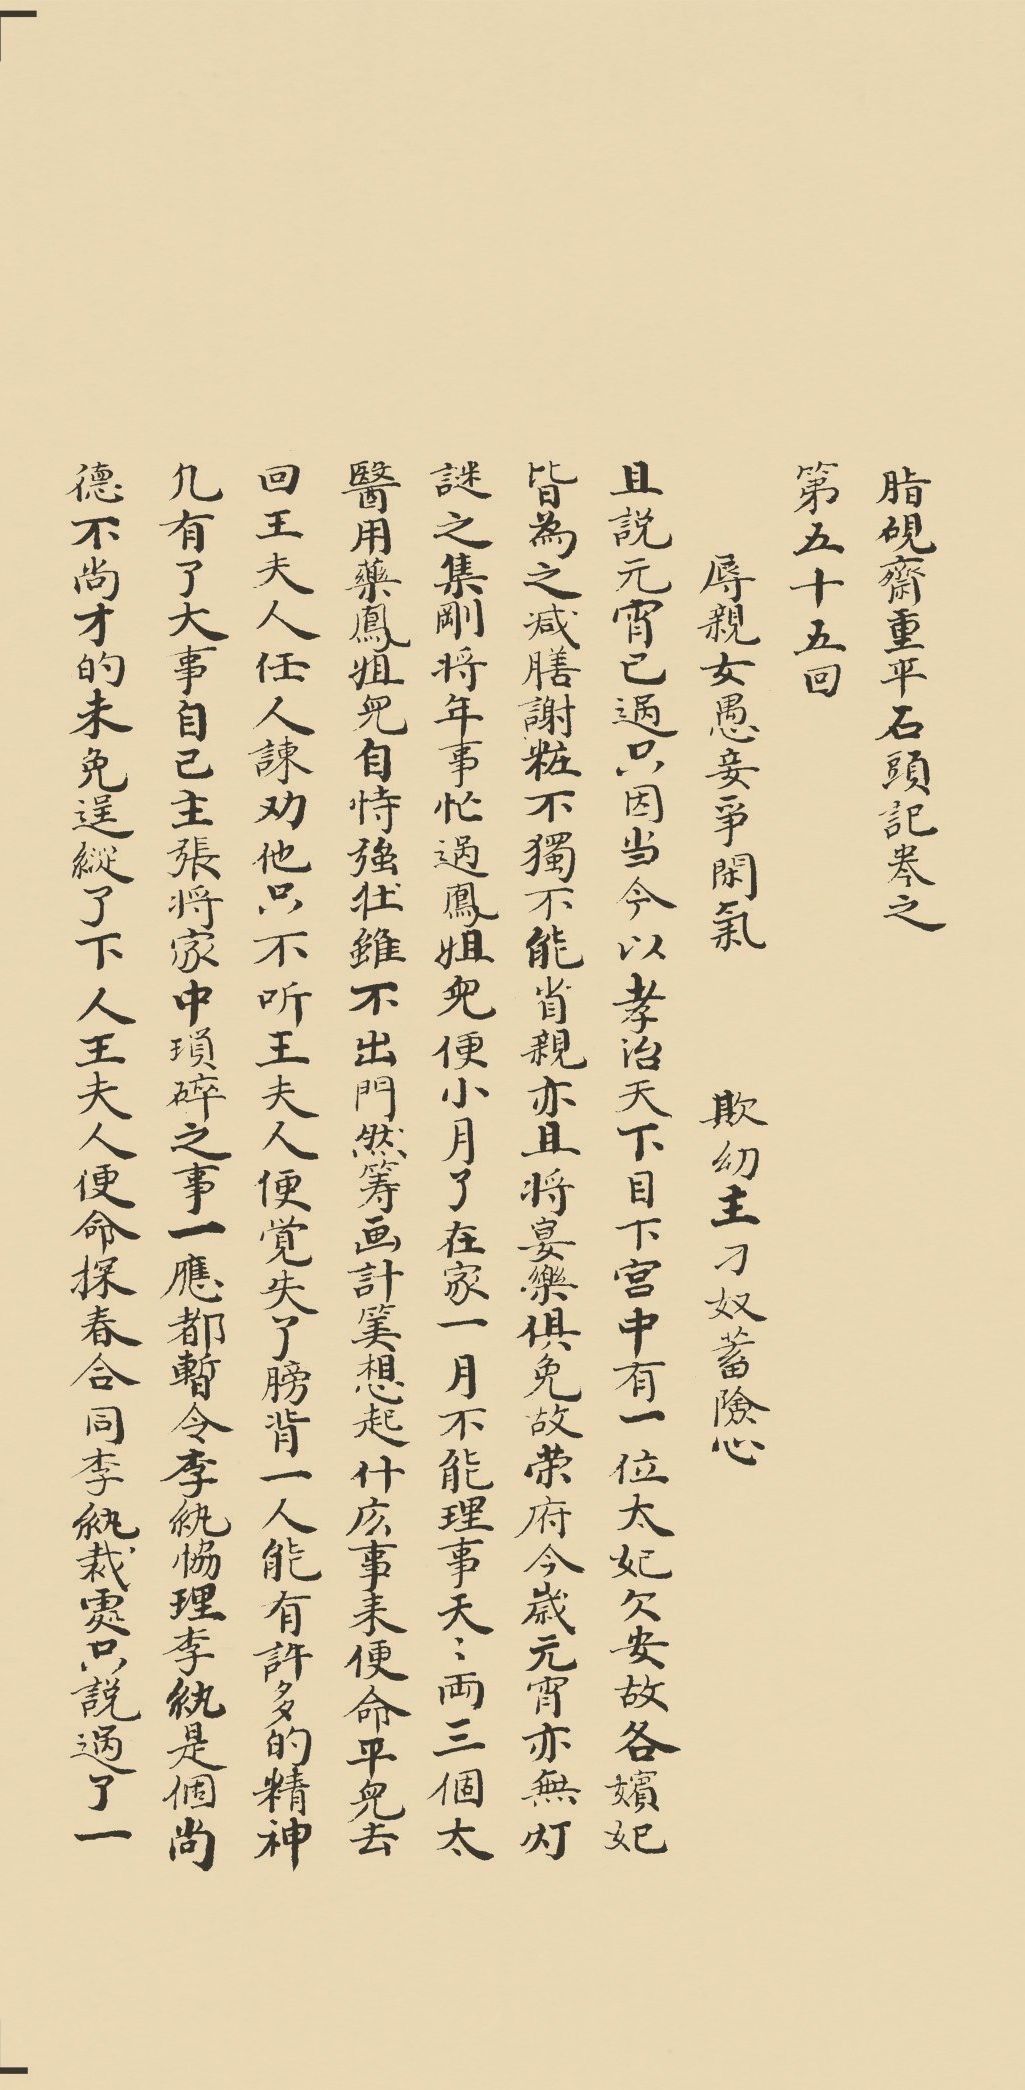 脂硯齋重平石頭記卷之
第五十五回
辱親女愚妾爭閑氣　欺幼主刁奴蓄險心
且説元宵已過只因当今以孝治天下目下宫中有一位太妃欠安故各嬪妃
皆為之减膳謝粧不獨不能省親亦且将宴樂俱免故荣府今歲元宵亦無灯
謎之集剛将年事忙過鳳姐兒便小月了在家一月不能理事天〻両三個太
醫用藥鳳姐兒自恃強壯雖不出門然筹画計筭想起什庅事来便命平兒去
回王夫人任人諫劝他只不听王夫人便覚失了膀背一人能有許多的精神
凢有了大事自己主張将家中瑣碎之事一應都暫令李紈恊理李紈是個尚
德不尚才的未免逞縱了下人王夫人便命探春合同李紈裁處只説過了一